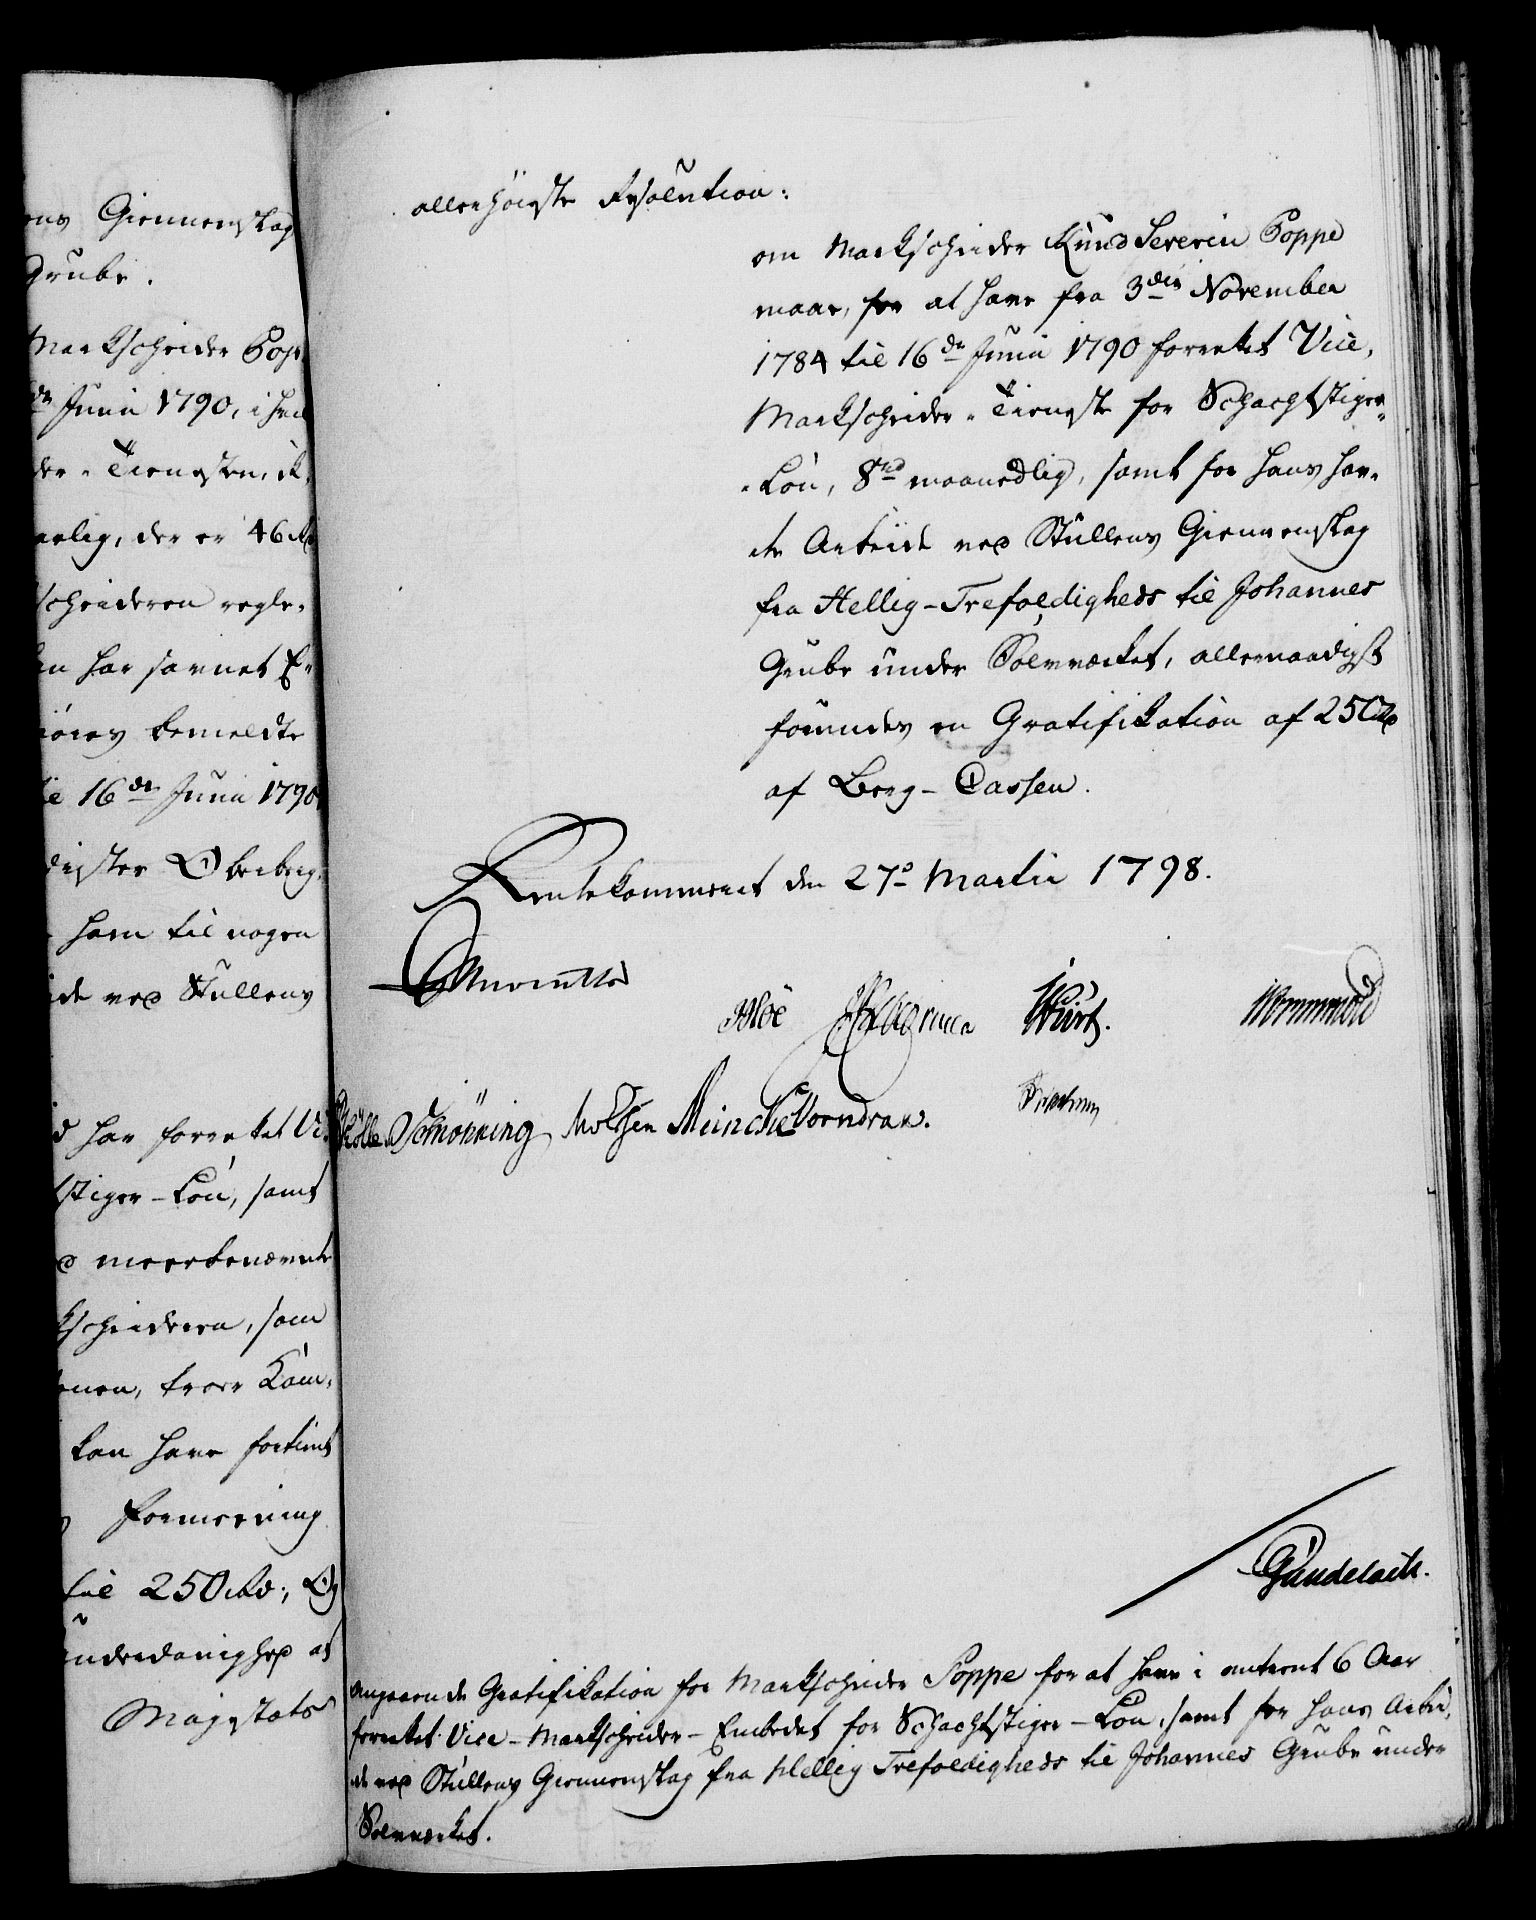 ens Giennemslag
Grube.
Markscheider Pop¬
dn Junii 1790, i hen
der-Tienesten, ik¬
aarlig, der er 46 Rd
scheideren regle¬
en har savnet E¬
bemeldte
16dn Junii 1790
Oberberg¬
ham til nogen
ide ved Stullens
har forrettet Vi¬
stiger-Lön, samt
meerbenævnte
kscheideren, som
troer Kam¬
kan have fortient
Formeening
til 250 Rd; Og
underdanighed at
Majestæts
allerhöieste Resolution:
om Markscheider Knud Severin Poppe
maae, for at have fra 3die November
1784 til 16de Junii 1790 forrettet Vice,
Markscheider-Tieneste for Schachtstiger-
-Lön, 8 rd maanedlig, samt for hans hav¬
te Arbeide ved Stullens Giennemslag
fra Hellig-Trefoldigheds til Johannes
Grube under Sölvværket, allernaadigst
forundes en Gratifikation af 250 Rd
af Berg-Cassen.
Rentekammeret den 27de Martii 1798.
Würtz. Wormskiold
Schönning Moltzen Meincke Vorndran.
Gundelach.
Angaaende Gratifikation for Markscheider Poppe for at have i omtrent 6 Aar
forrettet Vice-Markscheider-Embedet for Schachtstiger-Lön, samt for hans Arbei¬
de ved Stullens Giennemslag fra Hellig Trefoldigheds til Johannes Grube under
Sölvværket.